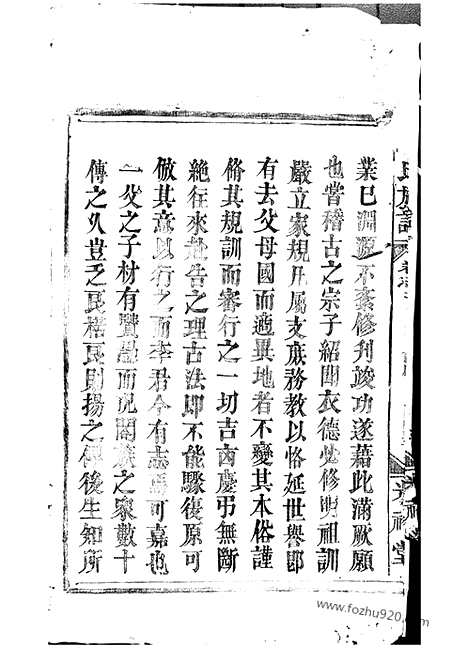 業已淵源不紊修刋竣功遂藉此滿厥願
也嘗稽古之宗子紹聞衣德必修明祖訓
嚴立家規凡屬支庶務教以恪延世譽即
有去父母國而適異地者不變其本俗謹
脩其規訓而審行之一切吉凶慶弔無斷
絶往來赴告之理古法即不能驟復原可
倣其意以行之而李君今有志焉可嘉也
一父之子材有賢愚而况闔族之衆數十
傳之久豈乏良楛良則揚之俾後生知所
氏族譜
堂
www.fozhu920.com